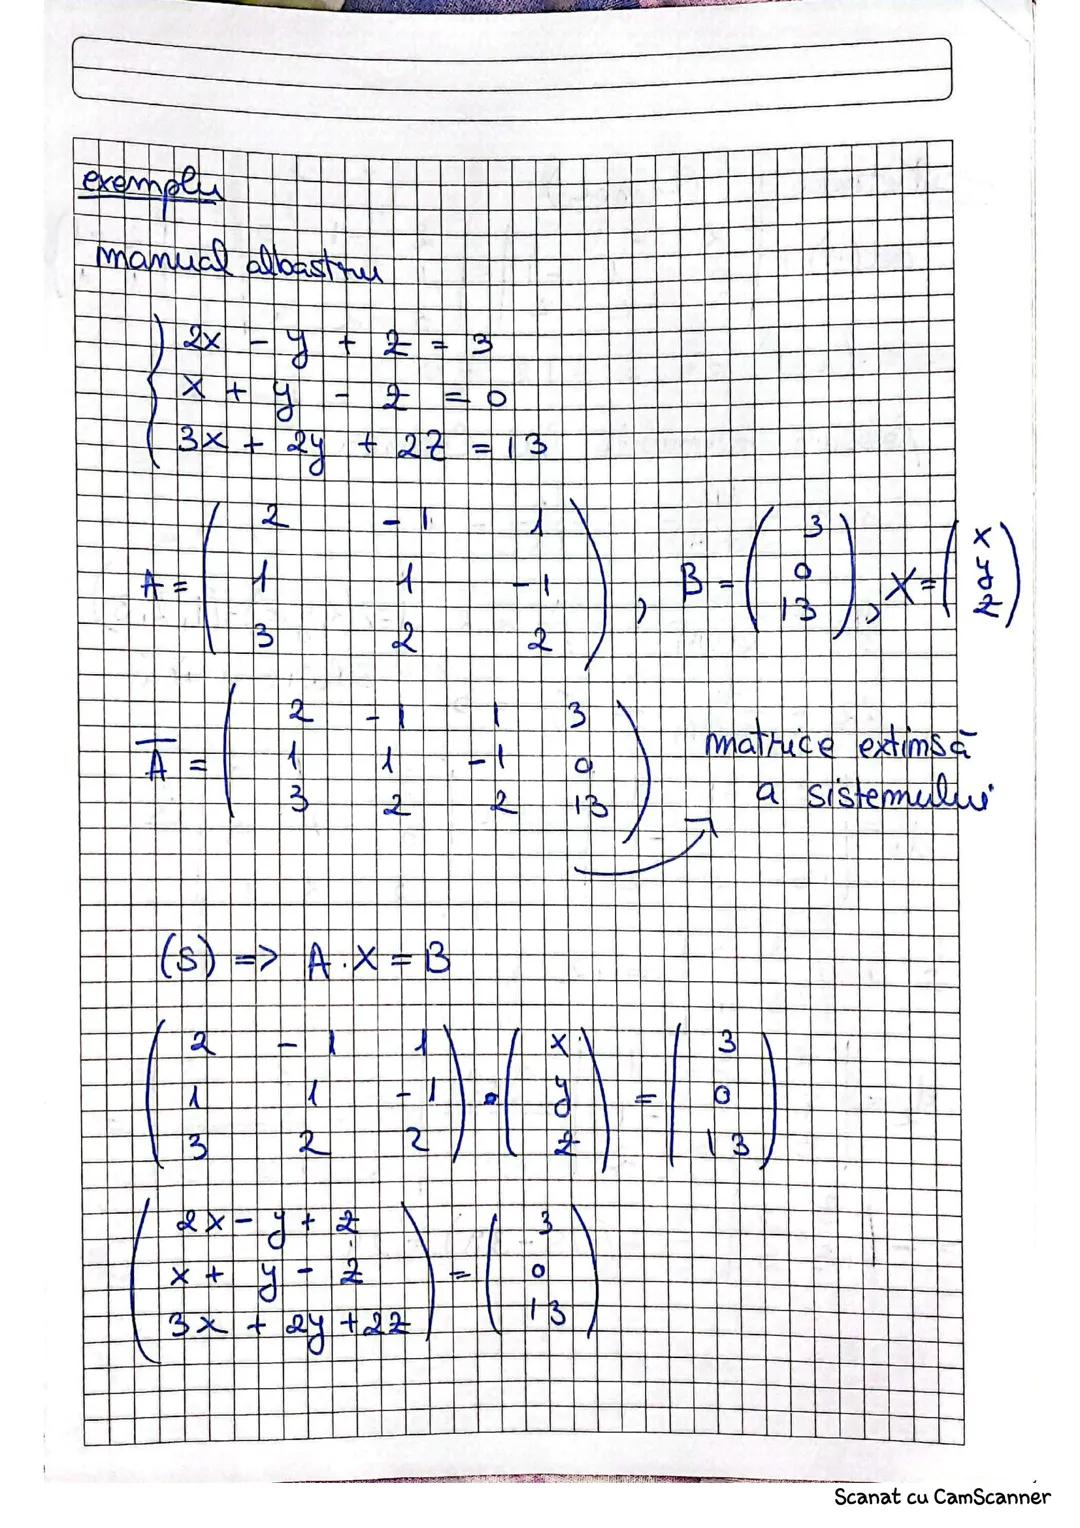 exemplu
manual albastru
2x - y + z = 3
x + y - z = 0
3x + 2y + 2z = 13
A = ( 2 -1 1
1 1 -1
3 2 2 ) , B = ( 3
0
13 ) , X = ( x
y
z )
A̅ = ( 2 -1 1 3
1 1 -1 0
3 2 2 13 )
matrice extinsă
a sistemului
(S) => A · X = B
( 2 -1 1
1 1 -1
3 2 2 ) · ( x
y
z ) = ( 3
0
13 )
( 2x - y + z
x + y - z
3x + 2y + 2z ) = ( 3
0
13 )
Scanat cu CamScanner